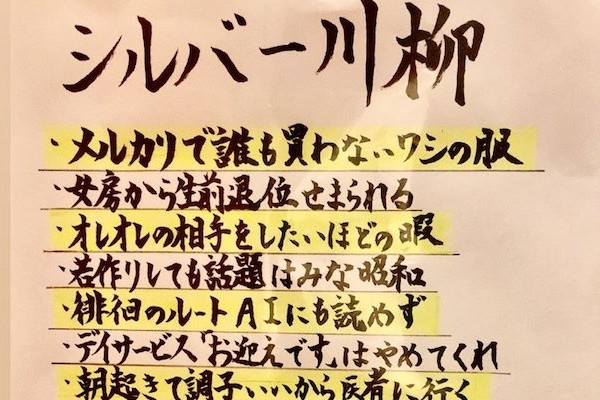 シルバー川柳
・メルカリで誰も買わないワシの服
・女房から生前退位せまられる
・オレオレの相手をしたいほどの暇
・若作りしても話題はみな昭和
・徘徊のルートAIにも読めず
・デイサービス「お迎えです」はやめてくれ
・朝起きて調子いいから医者に行く